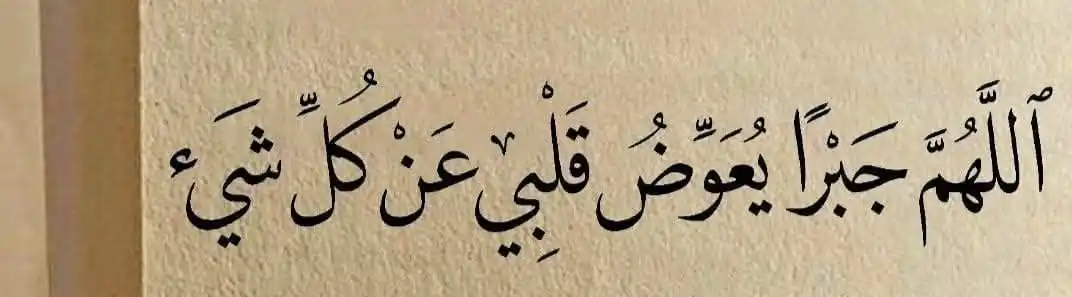 ٱللَّهُمَّ جَبْرًا يُعَوِّضُ قَلْبِي عَنْ كُلِّ شَيء